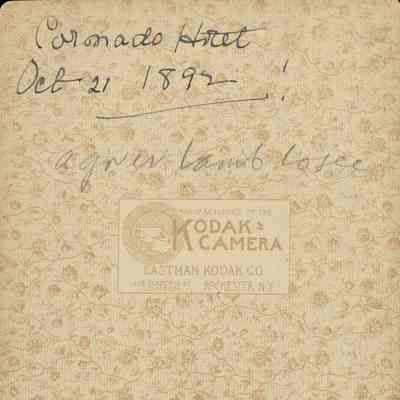 Coronado Hotel
Oct 21 1892 !
agnes lamb losee
MANUFACTURERS OF THE
KODAK
CAMERA
EASTMAN KODAK CO
ROCHESTER, N.Y.